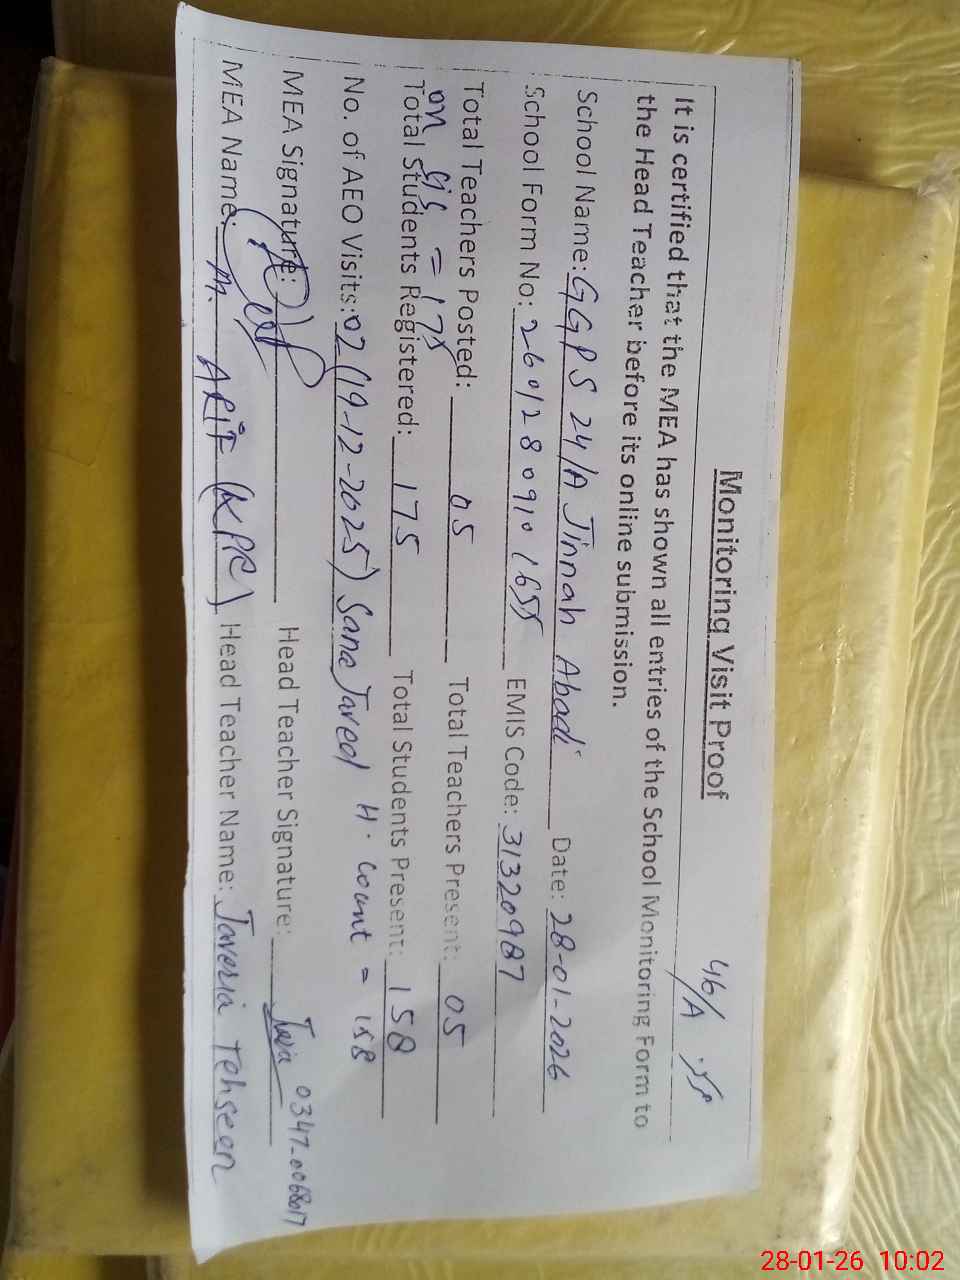 Monitoring Visit Proof
46/A
It is certified that the MEA has shown all entries of the School Monitoring Form to
the Head Teacher before its online submission.
School Name: GGPS 24/A Jinnah Abadi Date: 28-01-2026
School Form No: 26012809101655 EMIS Code: 31320987
Total Teachers Posted: 05 Total Teachers Present: 05
on sis = 175
Total Students Registered: 175 Total Students Present: 158
No. of AEO Visits: 02 (19-12-2025) Sana Javed H. Count = 158
MEA Signature: Head Teacher Signature: 0347-0068017
MEA Name: M. ARIF (KPR) Head Teacher Name: Javeria Tehseen
28-01-26 10:02